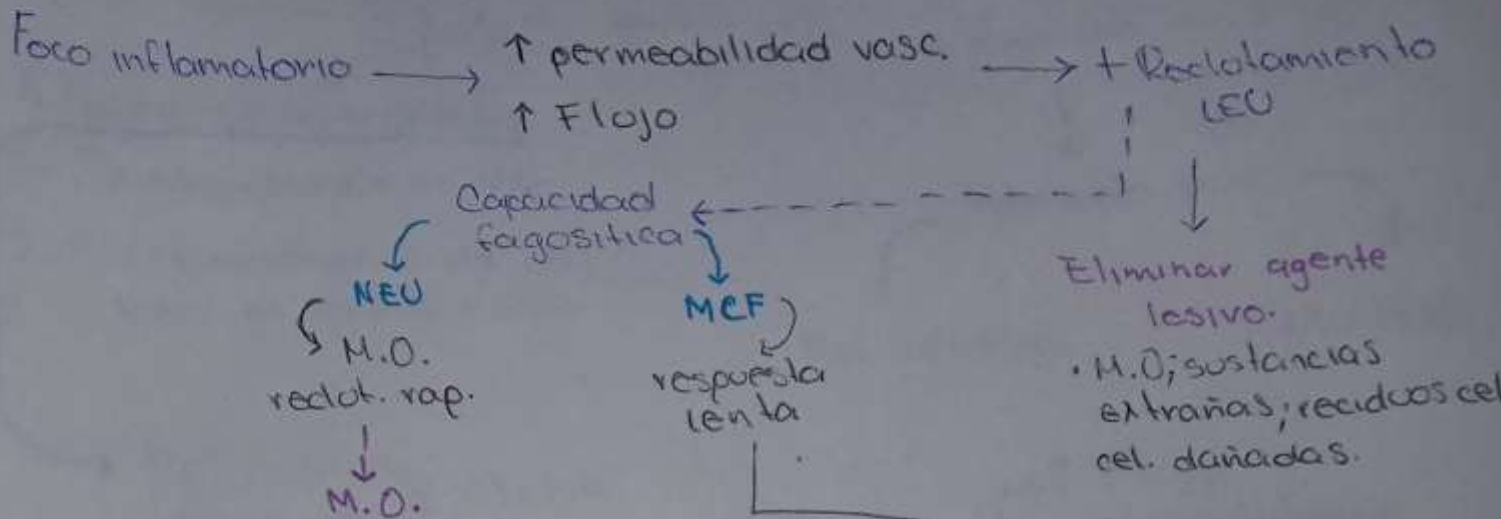 Foco inflamatorio → ↑ permeabilidad vasc. → + Reclutamiento
↑ Flujo
LEU
Capacidad
fagositica
NEU
M.O.
reclut. rap.
M.O.
MCF
respuesta
lenta
Eliminar agente
lesivo.
· M.O; sustancias
extrañas; reciduos cel
cel. dañadas.